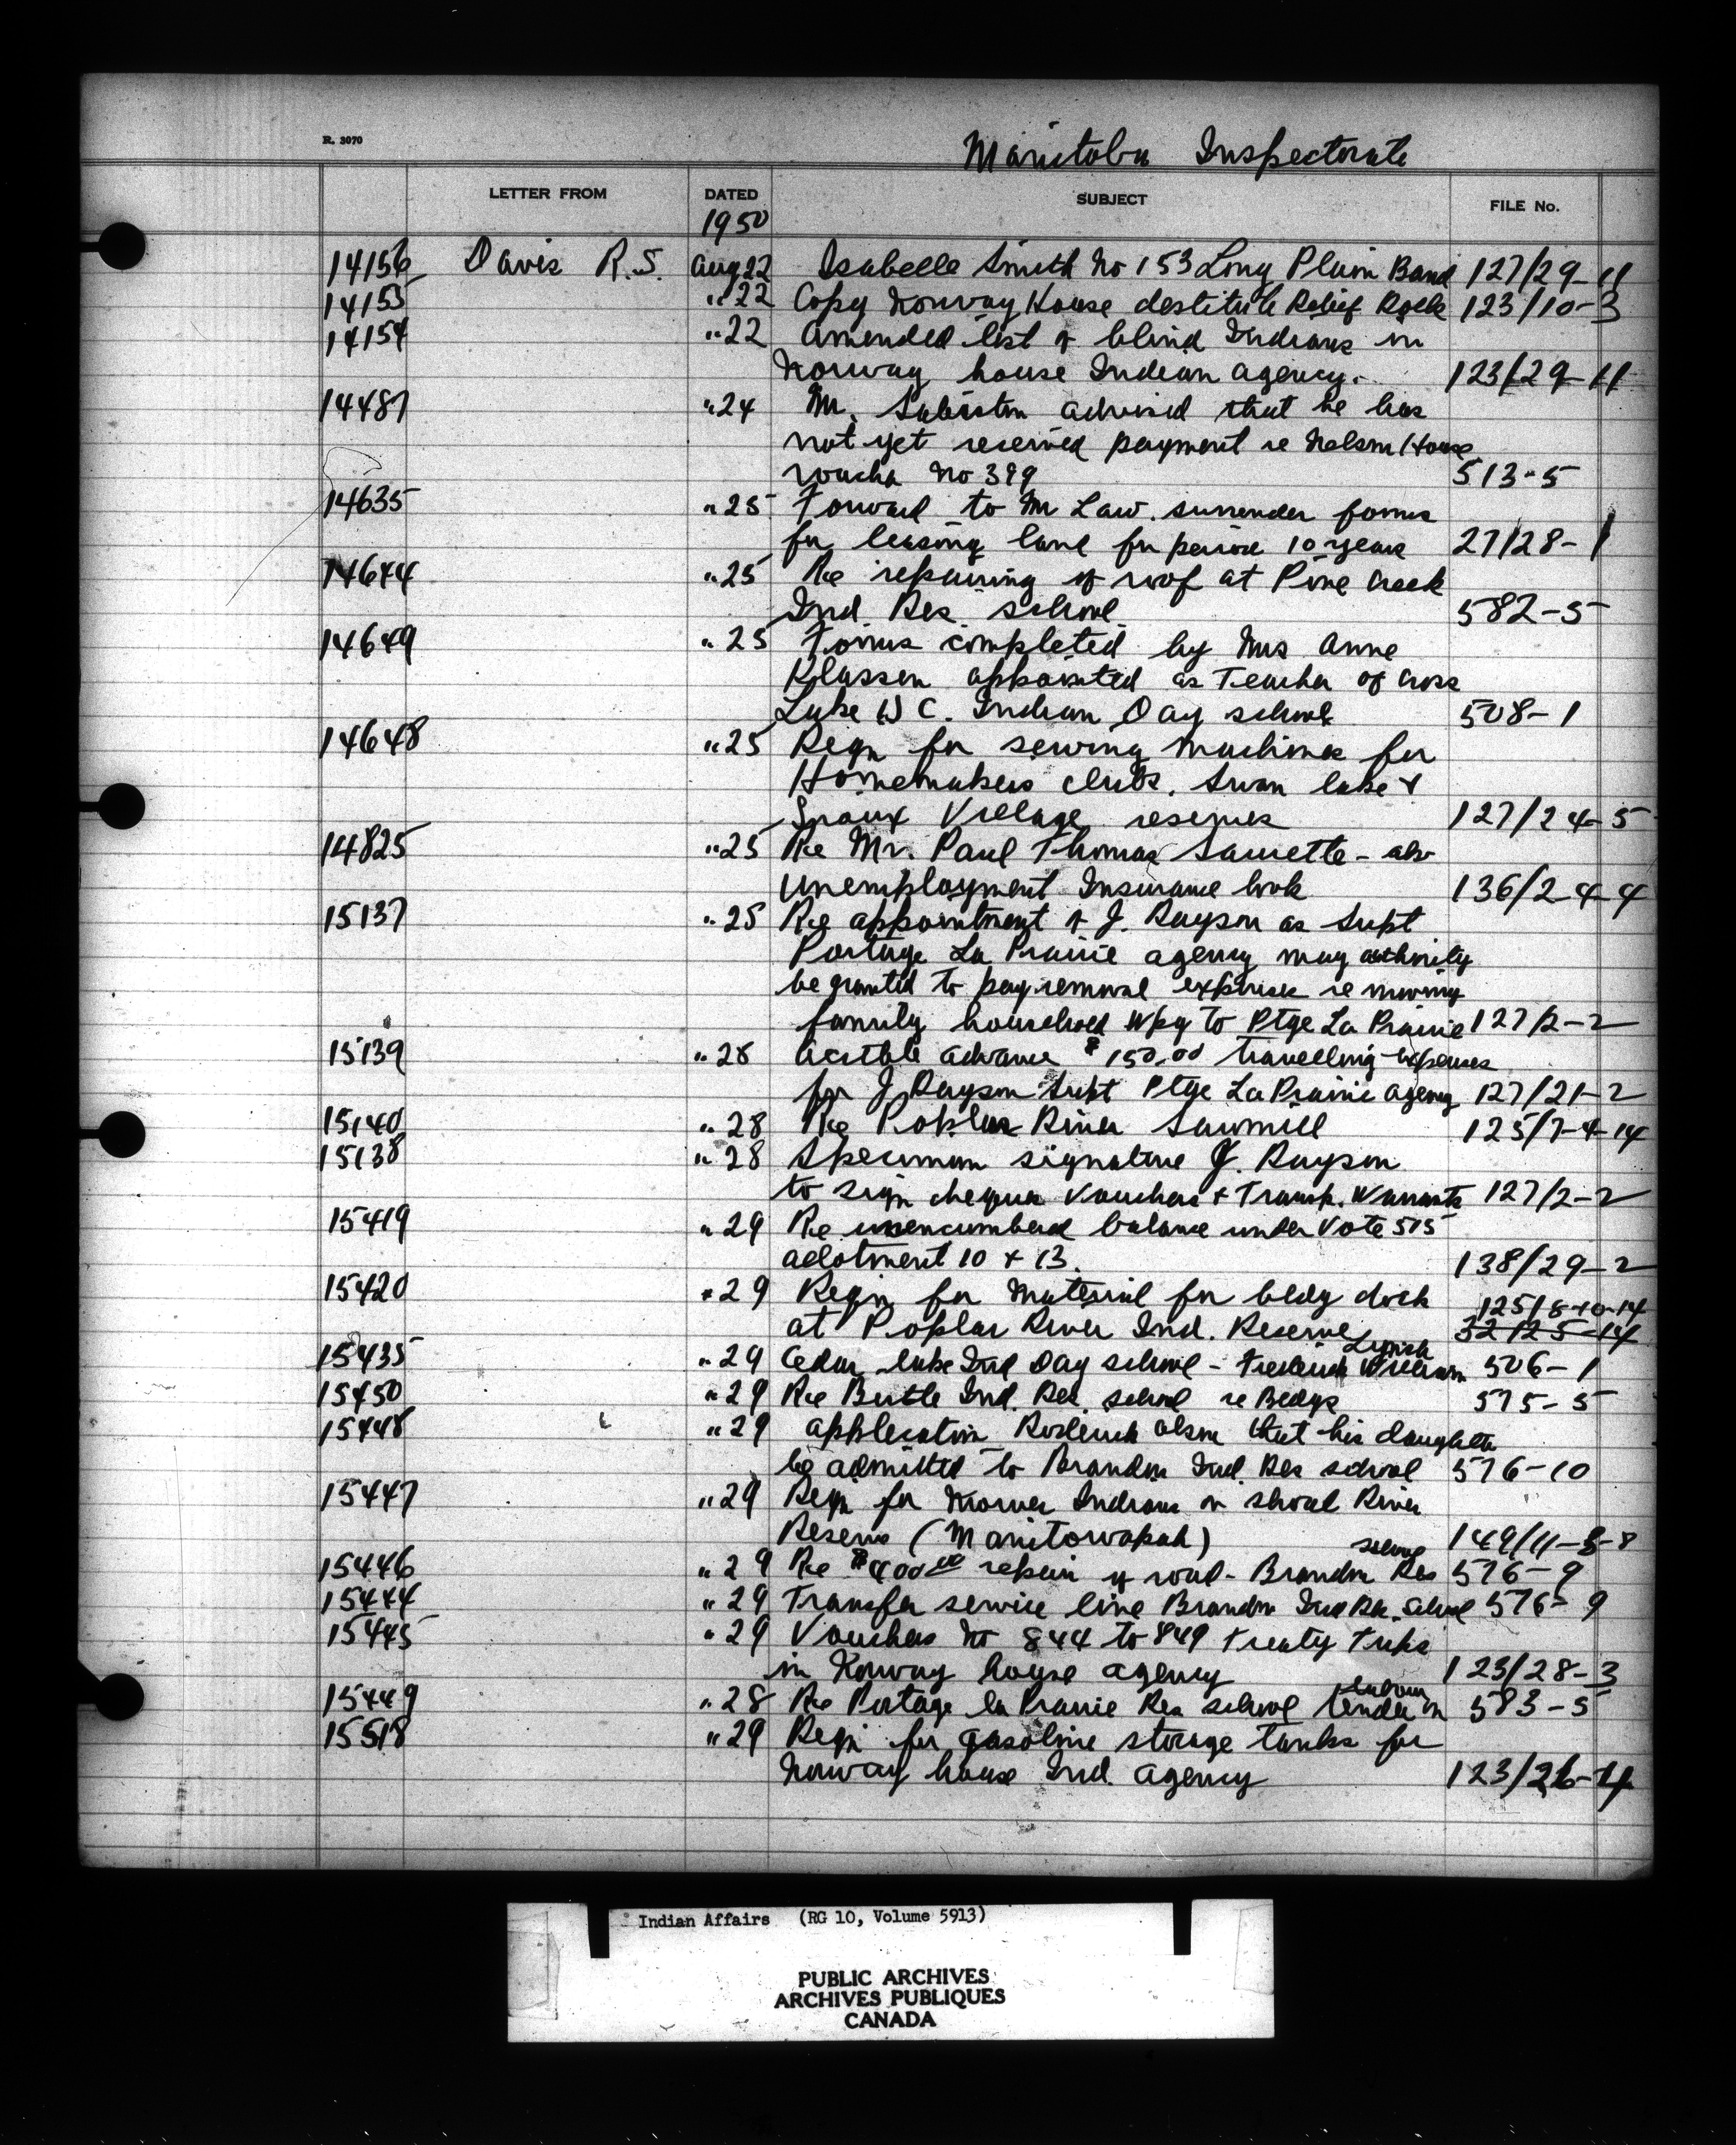 R. 3070
Manitoba Inspectorate
LETTER FROM DATED SUBJECT FILE No.
1950
14156 Davis R.S. Aug 22 Isabelle Smith No 153 Long Plain Band 127/29-11
14155 " 22 Copy Norway House destitute Relief Rolls 123/10-3
14154 " 22 Amended list of blind Indians in
Norway house Indian agency. 123/29-11
14487 " 24 Mr. advised that he has
not yet received payment re Nelson House
voucher No 399 513-5
14635 " 25 Forward to Mr Law. surrender forms
for leasing land for period 10 years 27/28-1
14644 " 25 Re repairing of roof at Pine Creek
Ind. Res. school 582-5
14649 " 25 Forms completed by Mrs Anne
Klassen appointed as Teacher of Cross
Lake U C. Indian Day school 508-1
14648 " 25 Reqn for sewing machines for
Homemakers clubs. Swan lake &
Sioux Village reserves 127/24-5
14825 " 25 Re Mr. Paul Thomas - also
unemployment Insurance book 136/2-4-4
15137 " 25 Re appointment of J. Rayson as Supt
Portage La Prairie agency may authority
be granted to pay removal expenses re moving
family household Wpg to Ptge La Prairie 127/2-2
15139 " 28 Actble advance $150.00 travelling expenses
for J. Rayson Supt Ptge La Prairie agency 127/21-2
15140 " 28 Re Poplar River Sawmill 125/7-4-14
15138 " 28 Specimen signature J. Rayson
to sign cheques Vouchers & Transp. Warrants 127/2-2
15419 " 29 Re unencumbered balance under Vote 575
allotment 10 & 13. 138/29-2
15420 " 29 Reqn for Material for bldg dock 125/8-10-14
at Poplar River Ind. Reserve 32125-14
Lynch
15435 " 29 Cedar lake Ind Day school - Frederick William 506-1
15450 " 29 Re Birtle Ind. Res. school re Bldgs 575-5
15448 " 29 application Roderick Olson that his daughter
be admitted to Brandon Ind. Res school 576-10
15447 " 29 Reqn for Mower Indians on Shoal River
Reserve (Manitowapah) 149/11-8-8
school
15446 " 29 Re $400.00 repair of road - Brandon Res 576-9
15444 " 29 Transfer service line Brandon Ind Res. School 576-9
15445 " 29 Vouchers No 844 to 849 Treaty Trips
in Norway house agency 123/28-3
15449 " 28 Re Portage la Prairie Res school tender in 583-5
15518 " 29 Reqn for gasoline storage tanks for
Norway house Ind. agency 123/26-4
Indian Affairs (RG 10, Volume 5913)
PUBLIC ARCHIVES
ARCHIVES PUBLIQUES
CANADA